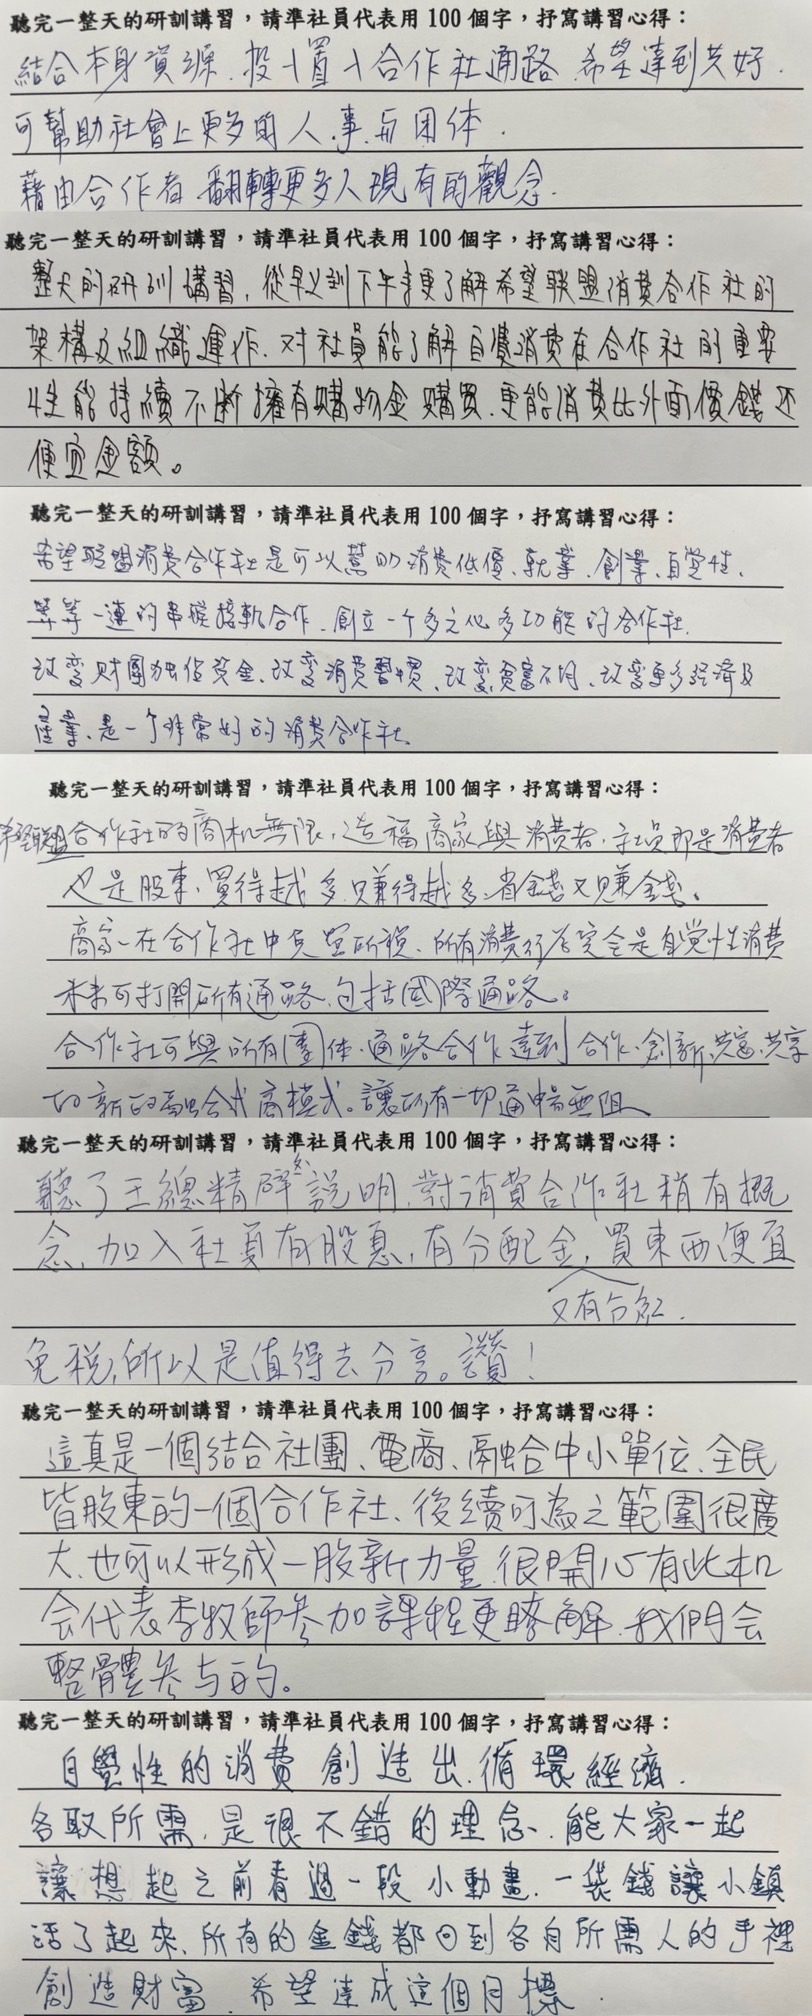 聽完一整天的研訓講習，請準社員代表用 100 個字，抒寫講習心得：
結合本身資源、投入置入合作社通路、希望達到共好、
可幫助社會上更多的人、事、與团体、
藉由合作者、翻轉更多人現有的觀念、
聽完一整天的研訓講習，請準社員代表用 100 個字，抒寫講習心得：
整天的研訓講習，從早上到下午更了解希望联盟消費合作社的
架構及組織運作、对社員能了解自覺消費在合作社的重要
性能持續不斷擁有購物金購買、更能消費比外面價錢还
便宜金額。
聽完一整天的研訓講習，請準社員代表用 100 個字，抒寫講習心得：
希望联盟消費合作社是可以幫助消費低價、就業、創業、自覺性、
等等一連的串聯接軌合作、創立一个多元化多功能的合作社、
改變財團独佔資金、改變消費習慣、改變貧富不均、改變更多经濟及
產業、是一个非常好的消費合作社、
聽完一整天的研訓講習，請準社員代表用 100 個字，抒寫講習心得：
希望联盟合作社的商机無限，造福商家與消費者，社員即是消費者
也是股東、買得越多只賺得越多、省錢又賺錢。
商家在合作社中免営所稅、所有消費行为完全是自覺性消費
未来可打開所有通路、包括國際通路。
合作社可與所有團体、通路合作達到合作、創新、共富、共享
的新的融合式商模式。讓所有一切通暢無阻
聽完一整天的研訓講習，請準社員代表用 100 個字，抒寫講習心得：
聽了王總精辟的說明，對消費合作社稍有概
念，加入社員有股息，有分配金，買東西便宜
又有分紅、
免稅，所以是值得去分享。讚！
聽完一整天的研訓講習，請準社員代表用 100 個字，抒寫講習心得：
這真是一個結合社團、電商、融合中小單位、全民
皆股東的一個合作社、後續可為之範圍很廣
大、也可以形成一股新力量、很開心有此机
会代表李牧師参加課程更瞭解、我們会
整體参与的。
聽完一整天的研訓講習，請準社員代表用 100 個字，抒寫講習心得：
自覺性的消費創造出、循環經濟、
各取所需、是很不錯的理念、能大家一起
讓想起之前看過一段小動畫、一袋錢讓小鎮
活了起來、所有的金錢都回到各自所需人的手裡
創造財富、希望達成這個目標、